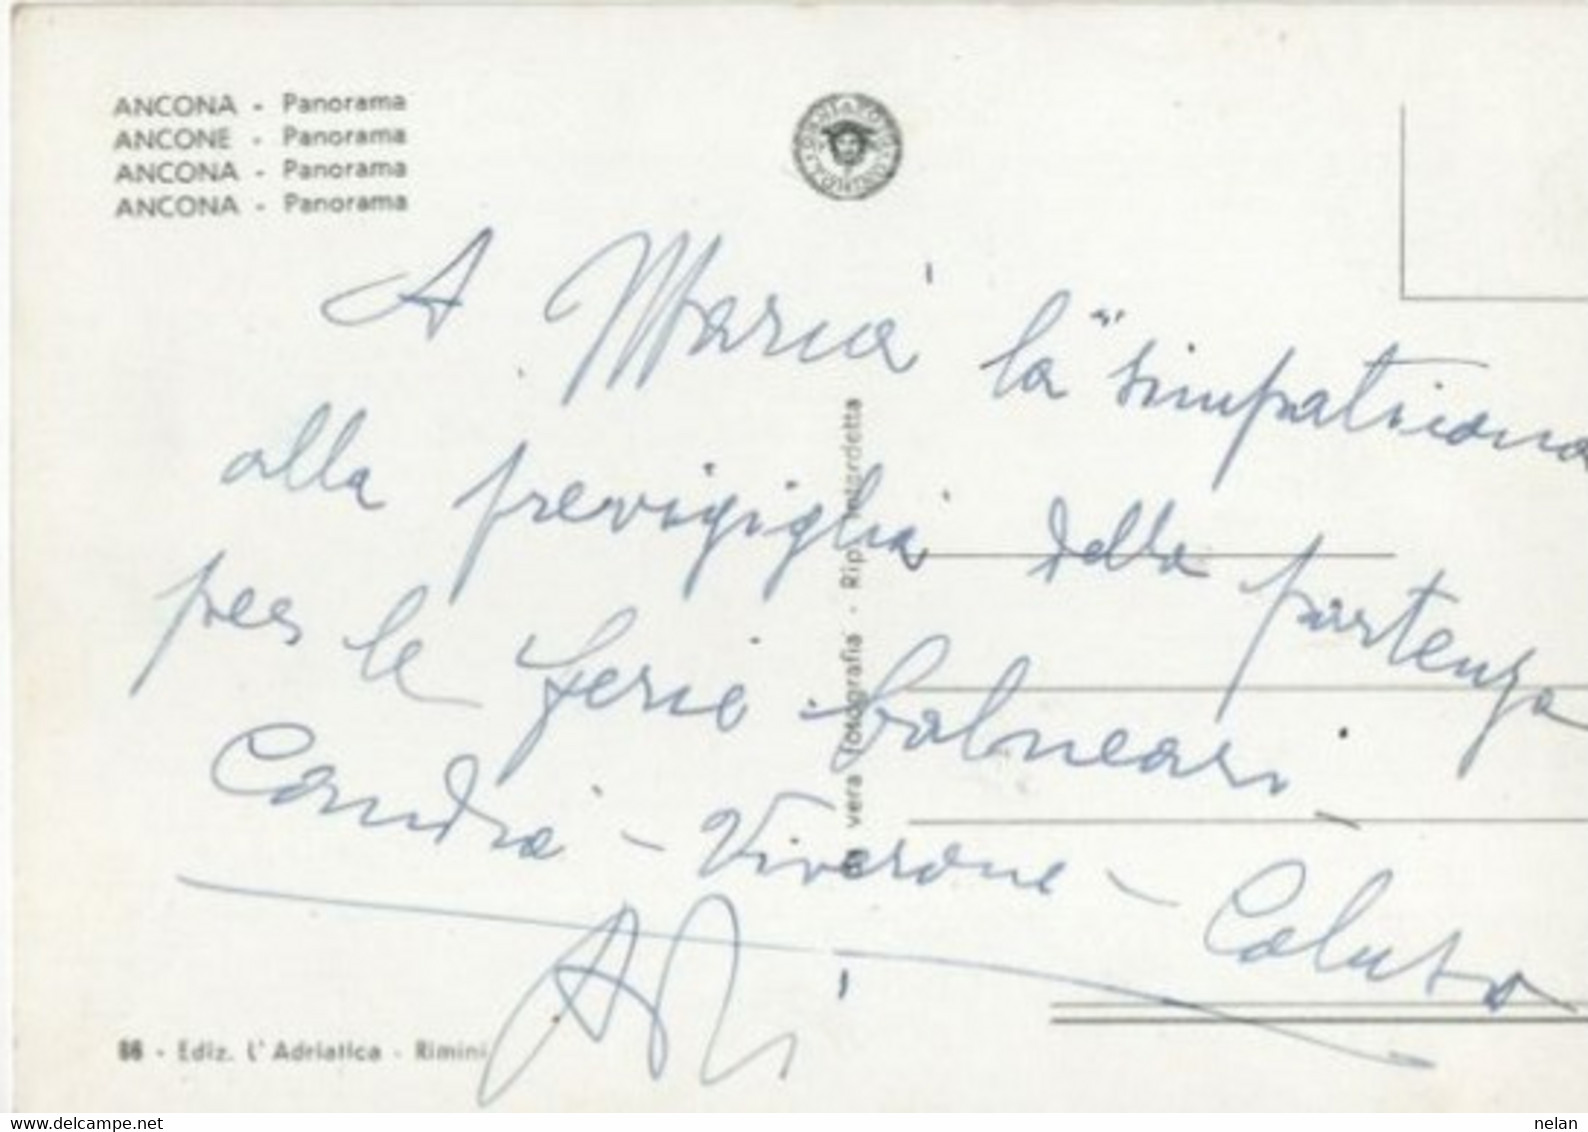 ANCONA - Panorama
ANCONE - Panorama
ANCONA - Panorama
ANCONA - Panorama
A Maria la "simpaticona
alla previgiglia della partenza
per le ferie balneari
Candia - Viverone - Caluso
vera fotografia - Rip. interdetta
86 - Ediz. L'Adriatica - Rimini
www.delcampe.net
nelan